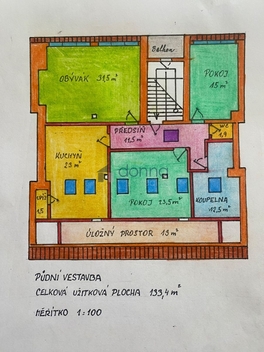 Balkon
OBÝVAK 31,5 m²
POKOJ
15 m²
PŘEDSÍŇ
11,5 m²
WC
1,4
KUCHYŇ
23 m²
donn
POKOJ 23,5 m²
KOUPELNA
12,5 m²
SPÍŽ
1,5
ÚLOŽNÝ PROSTOR 15 m²
PŮDNÍ VESTAVBA
CELKOVÁ UŽITKOVÁ PLOCHA 133,4 m²
MĚŘÍTKO 1:100